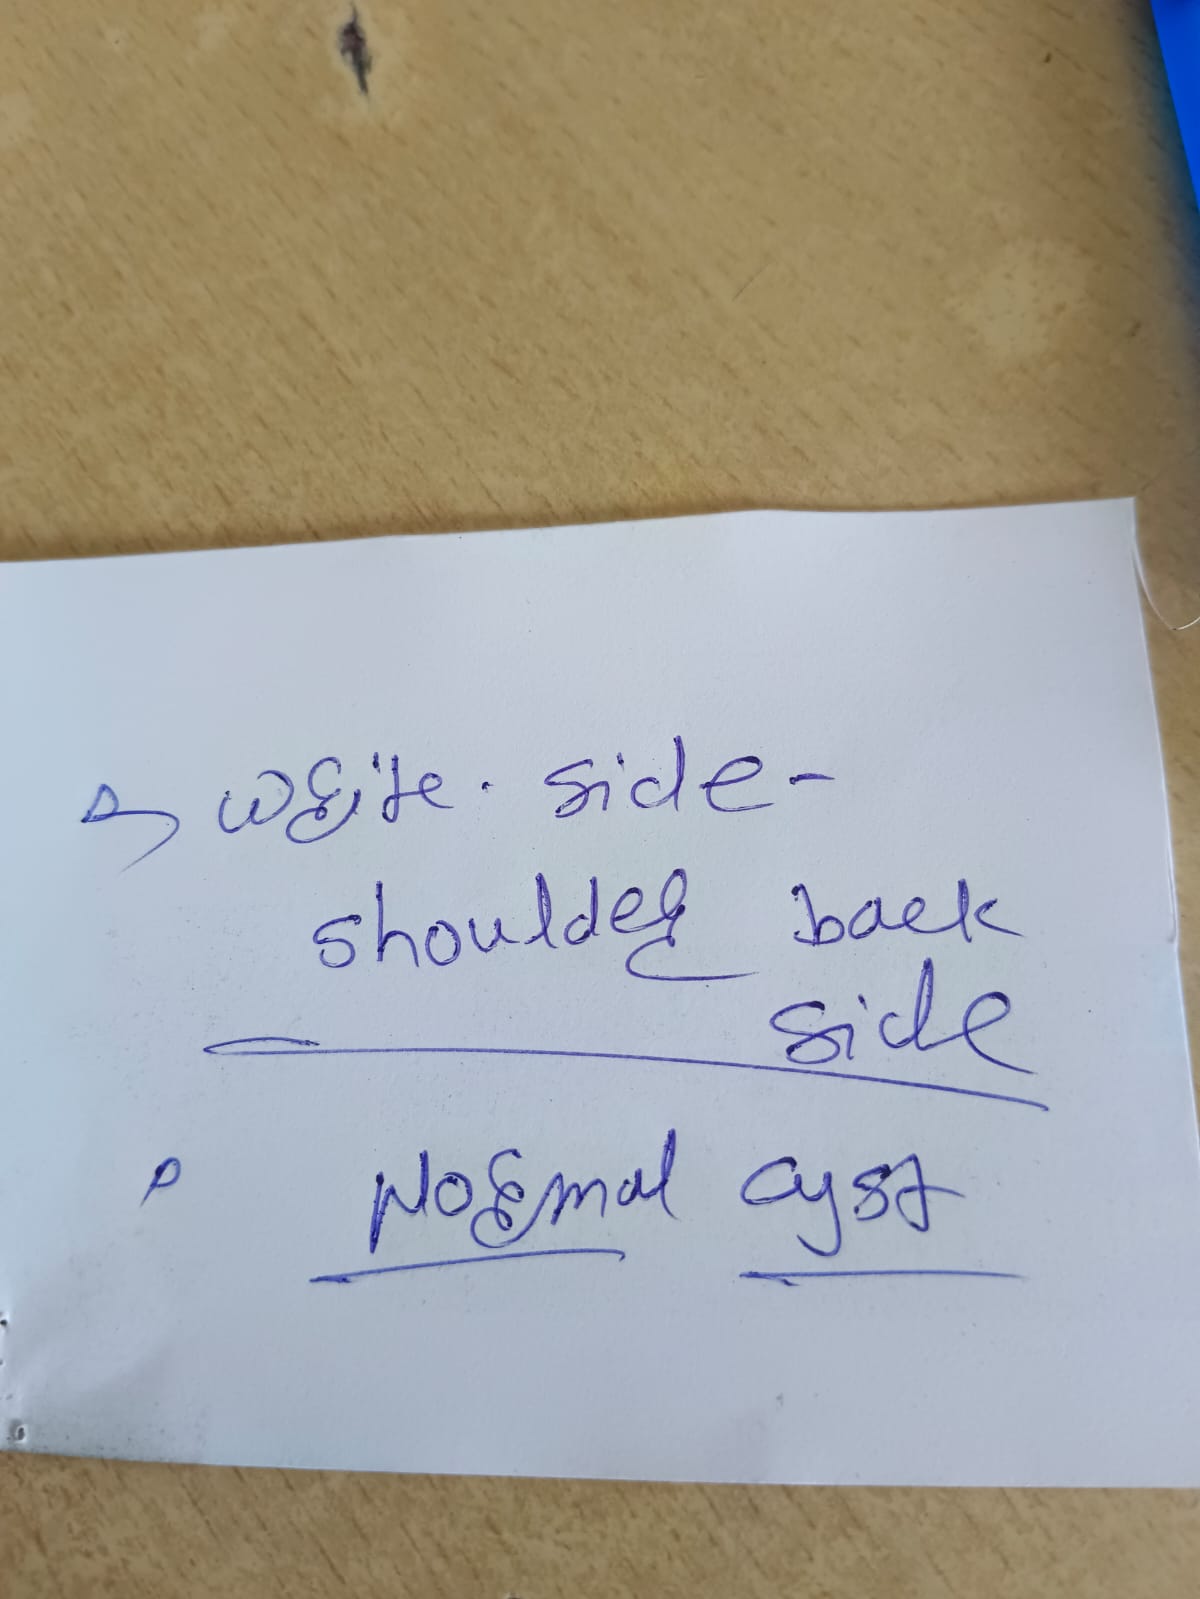 write. side-
shoulder back
side
Normal cyst